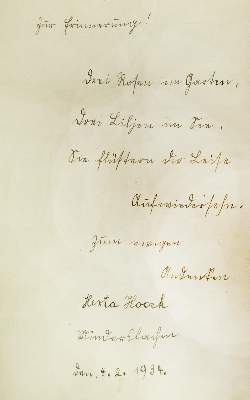 Zur Erinnerung!
Drei Rosen im Garten,
Drei Liljen im See,
Sie flüstern dir leise
Aufwiedersehn.
Zum ewigen
Andenken
Herta
den, 4. 2. 1934.